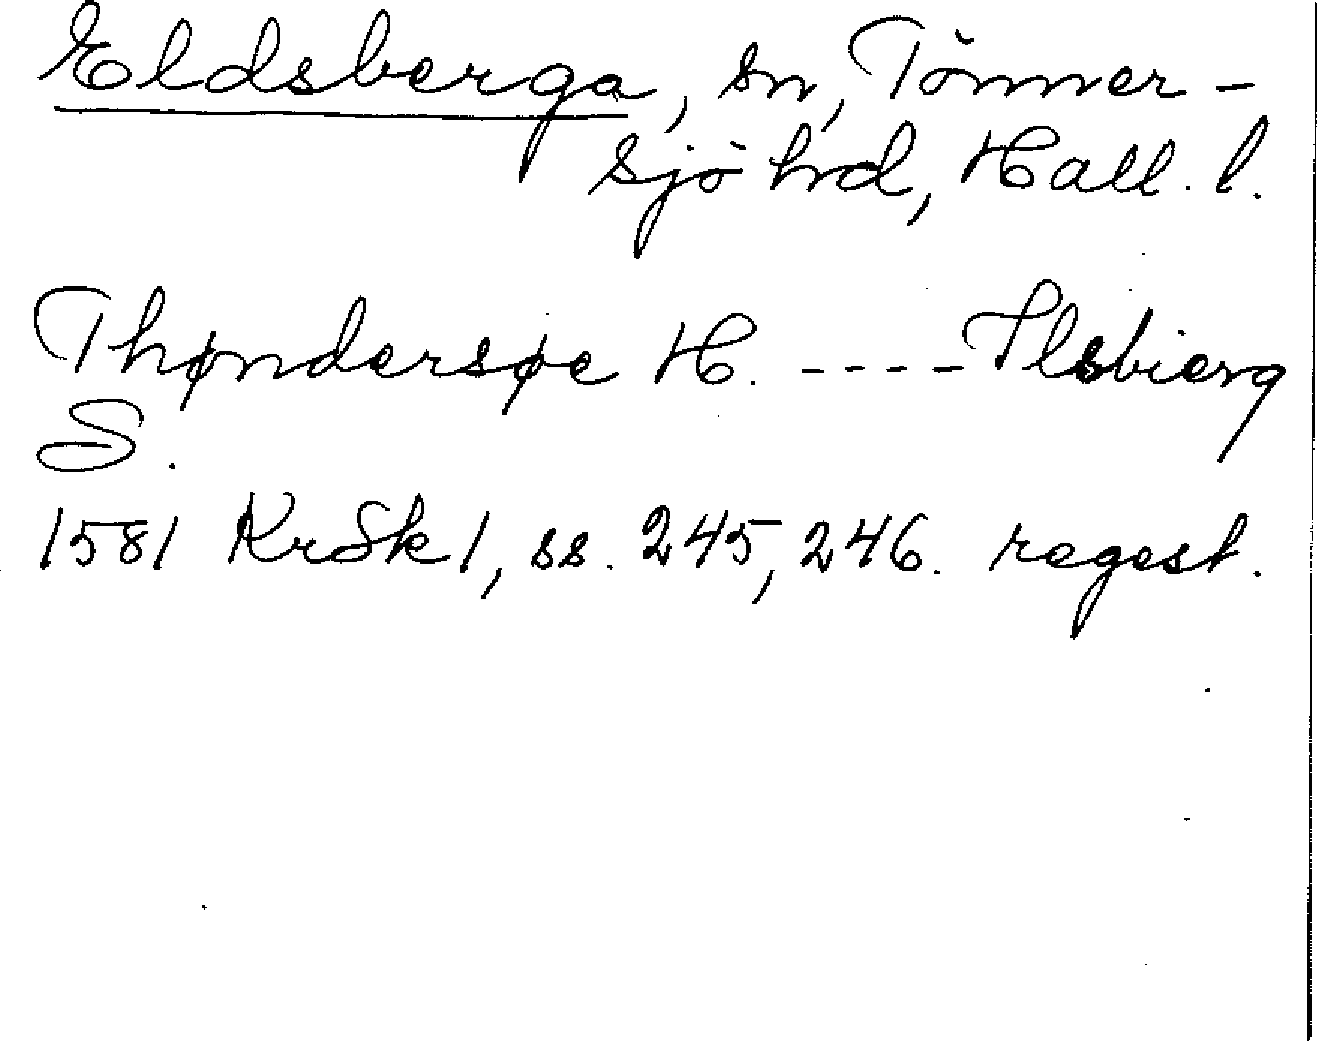 Eldsberga, sn, Tönner-
sjö hrd, Hall. l.
Thøndersøe H. ---- Ilsbierg
S.
1581 KrSk 1, ss. 245, 246. regest.